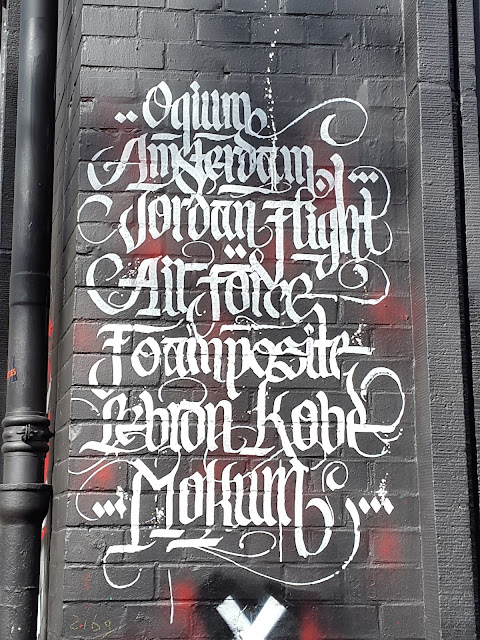 Oqium
Amsterdam
Jordan Flight
Air Force
Foamposite
Lebron Kobe
Mokum